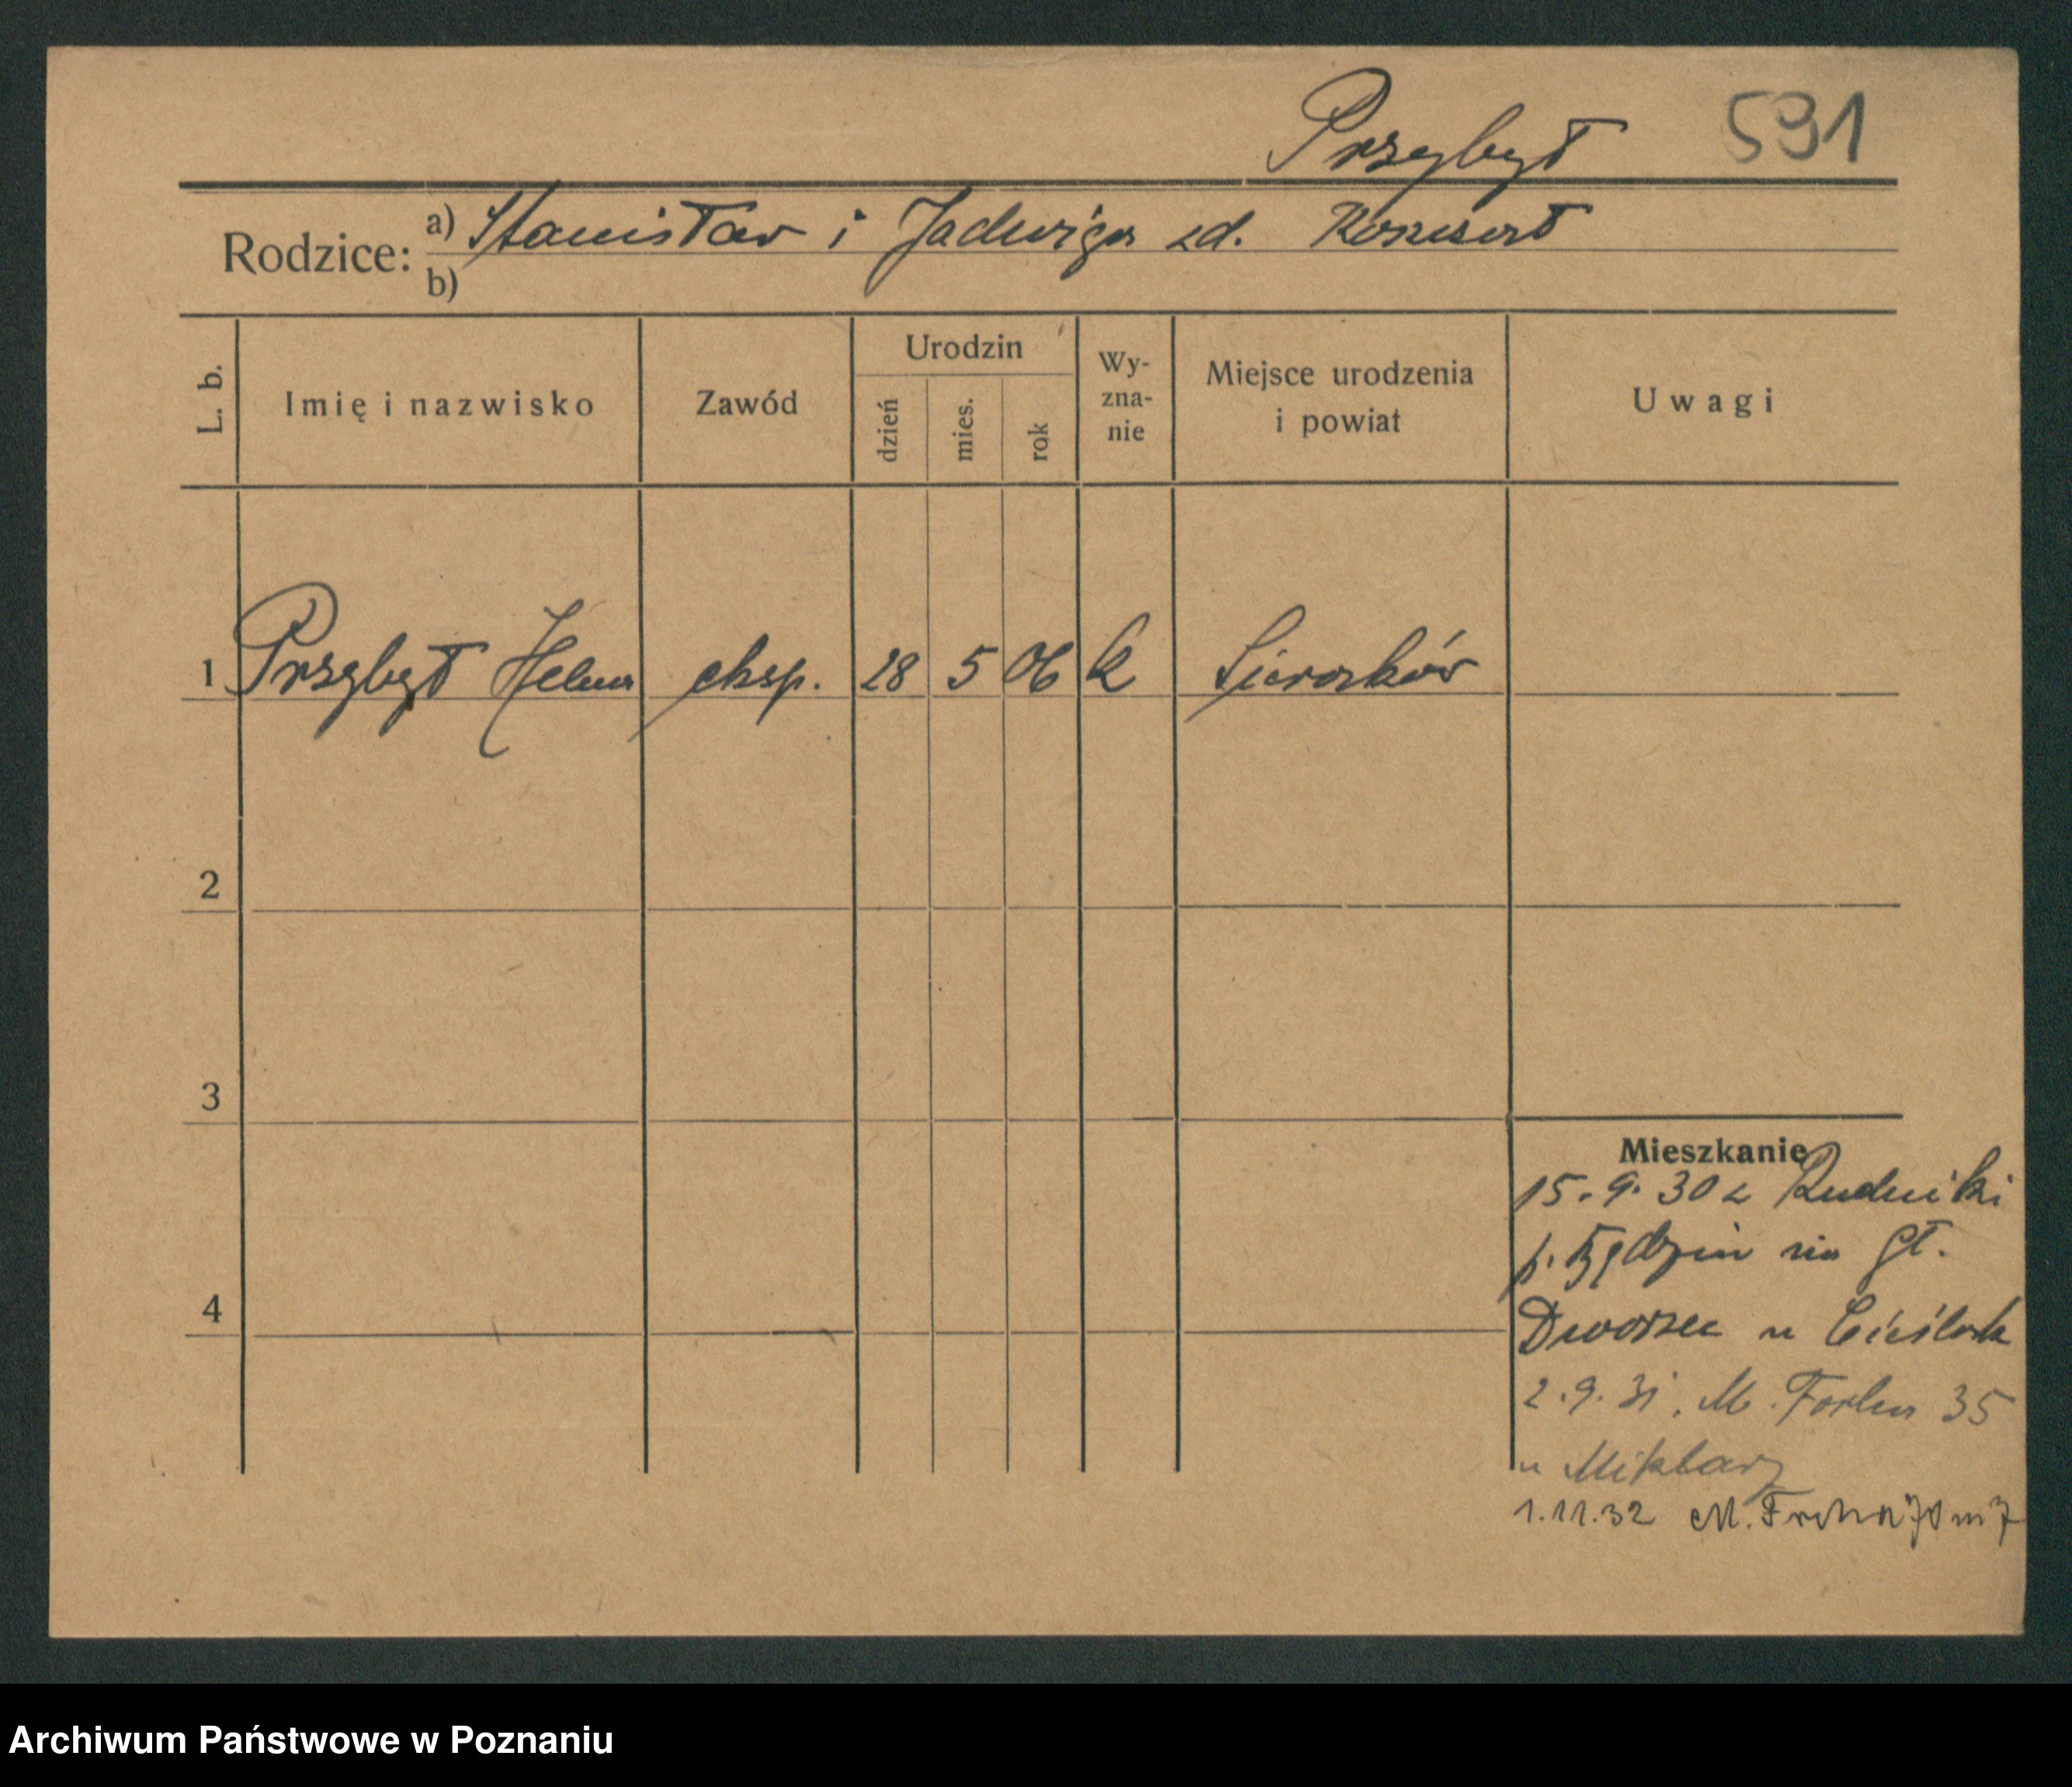 Przybył 591
Rodzice: a) Stanisław i Jadwiga zd.
b)
L. b. Imię i nazwisko Zawód Urodzin dzień mies. rok Wy-zna-nie Miejsce urodzenia i powiat Uwagi
1 Przybył Helena eksp. 28 5 06 k Sieraków
2
3
Mieszkanie
15.9.30 z Rudniki
p. na Gł.
4
Dworzec u Cieślak
2.9.31. M. 35
u
1.11.32 M.
Archiwum Państwowe w Poznaniu